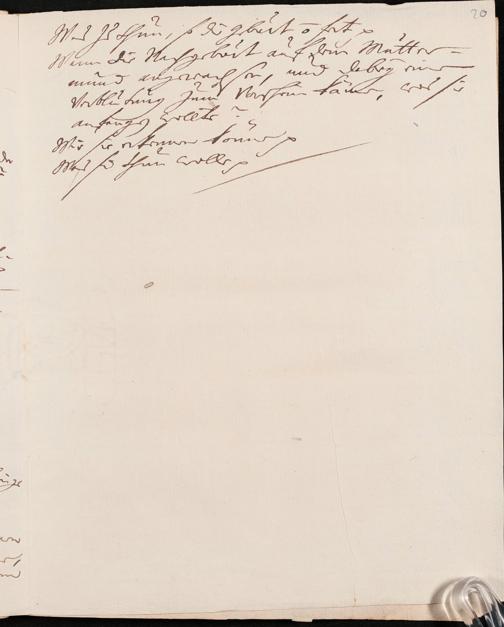 20
Was zu thun, so die geburt o fort
Wenn die Nachgeburt auf dem Mutter=
mund angewachsen, und dabey eine
Verblutung zum Vorschein käme, was sie
anfangen wollte?
Wie sie erkennen könne
Was sie thun wolle